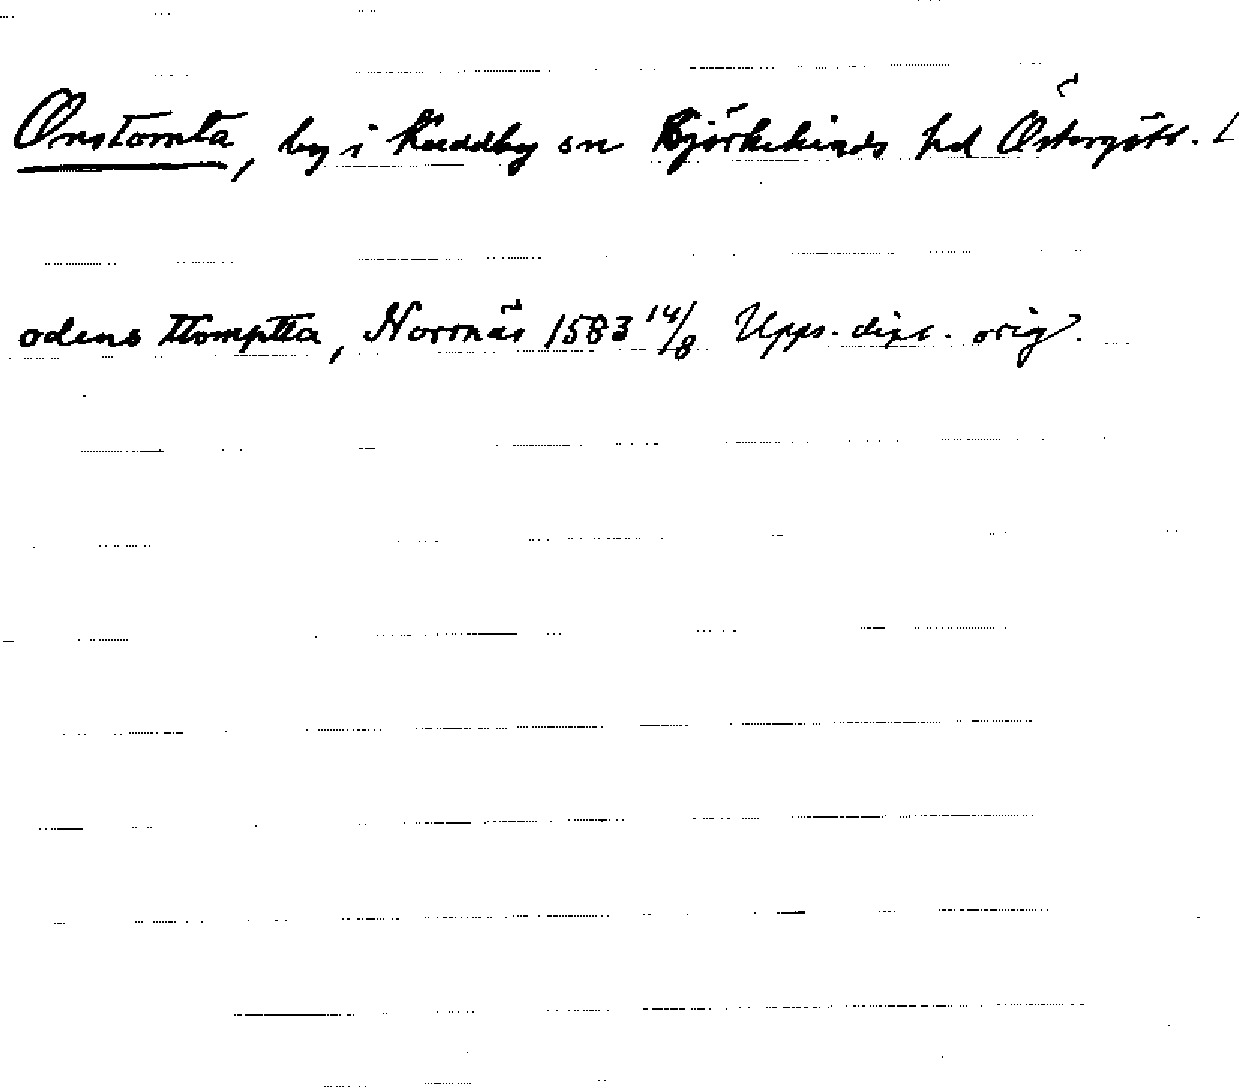 Onstomta, by i Kuddby sn Björkekinds hd Östergötl. l
odens ttomptta, Norrnäs 1583 14/8 Upps. dipl. orig.